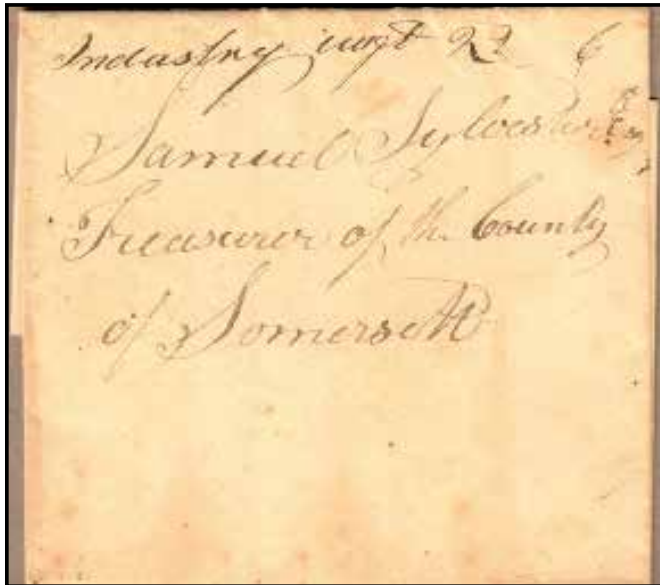 Industry augt 22 6
Samuel Sylvester Esqr
Treasurer of the County
of Somersett